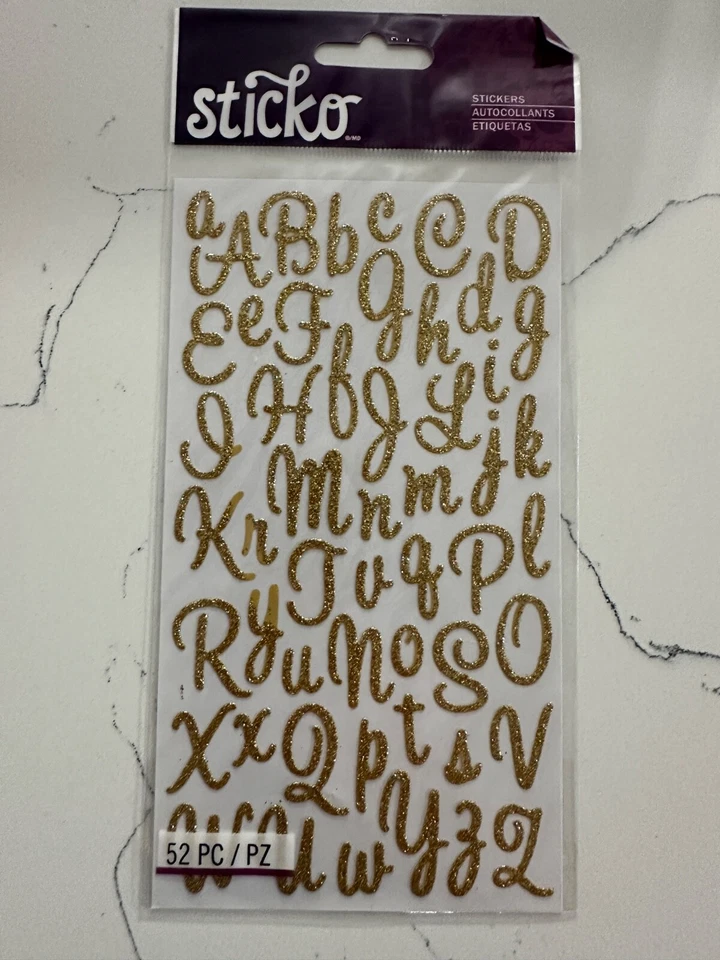 sticko
®/MD
STICKERS
AUTOCOLLANTS
ETIQUETAS
a A B b c C D
E e F G h d g
I H f J L i j k
K r M n m l
T v q P
R y u N o S O
X x Q p t s V
W U w Y z Z
52 PC / PZ